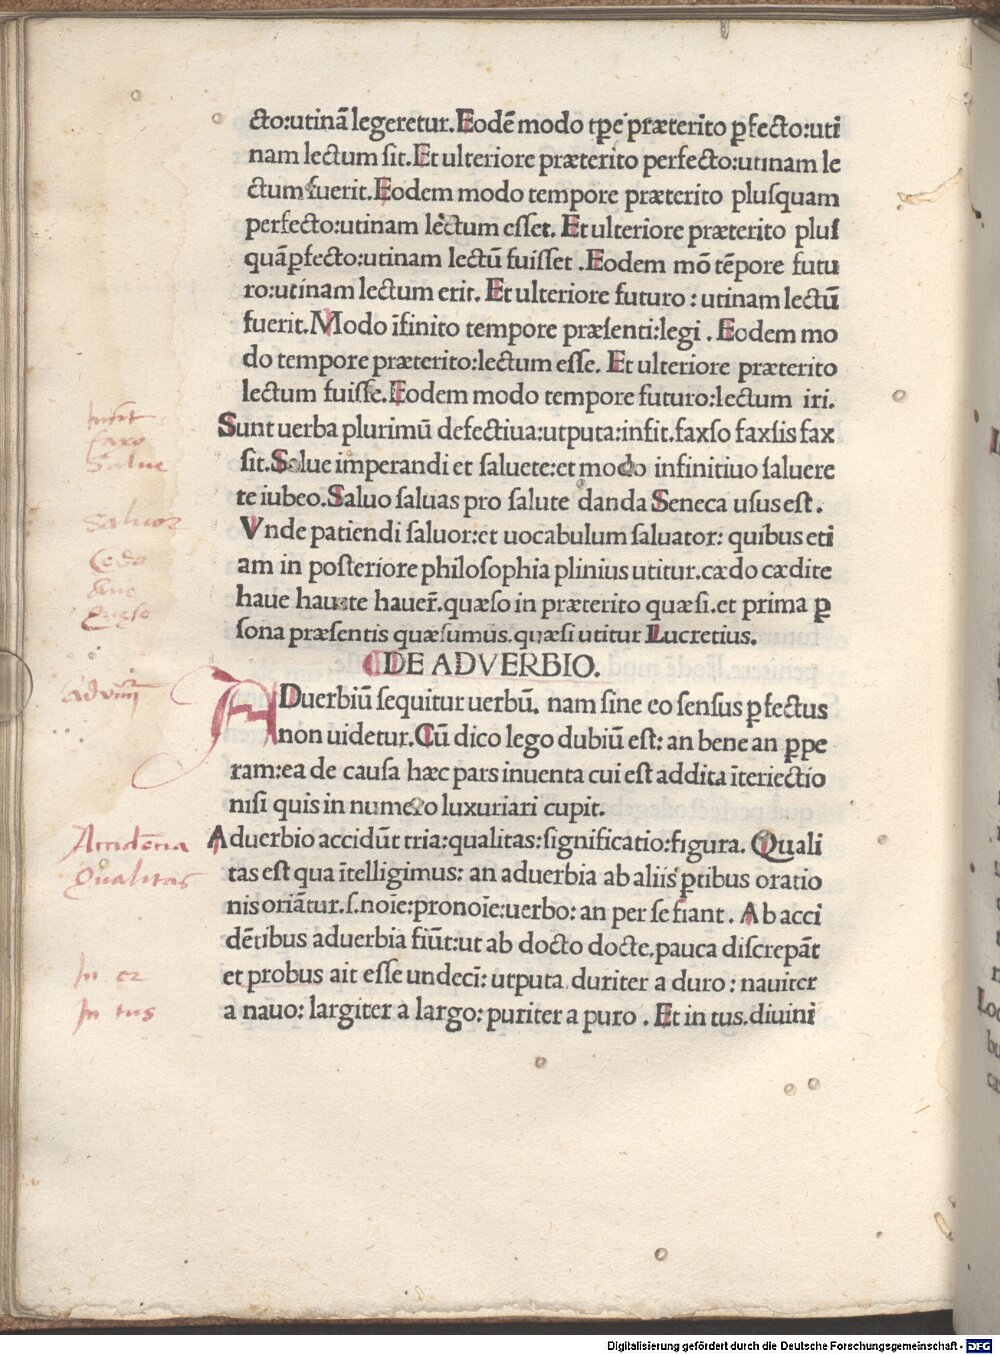 cto:utinã legeretur.Eodẽ modo tꝑe præterito ꝑfecto:uti
nam lectum ſit.Et ulteriore præterito perfecto:utinam le
ctum fuerit.Eodem modo tempore præterito pluſquam
perfecto:utinam lectum eſſet. Et ulteriore præterito pluſ
quãꝑfecto:utinam lectũ fuiſſet .Eodem mõ tẽpore futu
ro:utinam lectum erit. Et ulteriore futuro : utinam lectũ
fuerit.Modo ĩfinito tempore præſenti:legi . Eodem mo
do tempore præterito:lectum eſſe. Et ulteriore præterito
lectum fuiſſe.Eodem modo tempore futuro:lectum iri.
Sunt uerba plurimũ defectiua:utputa:infit.faxſo faxſis fax
ſit.Salue imperandi et ſaluete:et modo infinitiuo ſaluere
te iubeo.Saluo ſaluas pro ſalute danda Seneca uſus eſt .
Vnde patiendi ſaluor:et uocabulum ſaluator: quibus eti
am in poſteriore philoſophia plinius utitur.cædo cædite
haue hauete hauer̃.quæſo in præterito quæſi.et prima ꝑ
ſona præſentis quæſumus.quæſi utitur Lucretius.
DE ADVERBIO.
ADuerbiũ ſequitur uerbũ. nam ſine eo ſenſus ꝑfectus
non uidetur.Cũ dico lego dubiũ eſt: an bene an ꝑpe
ram:ea de cauſa hæc pars inuenta cui eſt addita ĩteriectio
niſi quis in numero luxuriari cupit.
Aduerbio accidũt tria:qualitas:ſignificatio:figura. Quali
tas eſt qua ĩtelligimus: an aduerbia ab aliis ꝑtibus oratio
nis oriãtur.ſ.noĩe:pronoĩe:uerbo: an per ſe fiant . Ab acci
dẽtibus aduerbia fiũt:ut ab docto docte.pauca diſcrepãt
et probus ait eſſe undecĩ: utputa duriter a duro : nauiter
a nauo: largiter a largo: puriter a puro . Et in tus.diuini
Infit
faxo
Salue
Saluor
Cedo
Aue
Queso
Accidẽtia
Qualitas
In er
In tus
Digitalisierung gefördert durch die Deutsche Forschungsgemeinschaft - DFG